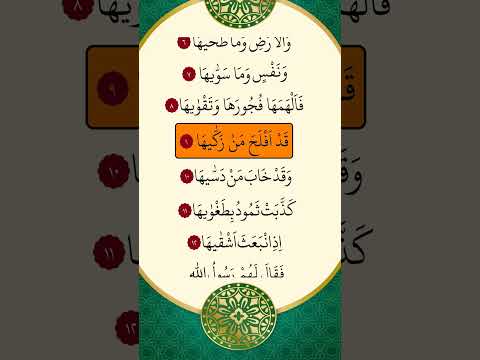 وَالْاَرْضِ وَمَا طَحٰيهَا ٦
وَنَفْسٍ وَمَا سَوّٰيهَا ٧
فَاَلْهَمَهَا فُجُورَهَا وَتَقْوٰيهَا ٨
قَدْ اَفْلَحَ مَنْ زَكّٰيهَا ٩
وَقَدْ خَابَ مَنْ دَسّٰيهَا ١٠
كَذَّبَتْ ثَمُودُ بِطَغْوٰيهَا ١١
اِذِ انْبَعَثَ اَشْقٰيهَا ١٢
فَقَالَ لَهُمْ رَسُولُ اللّٰهِ